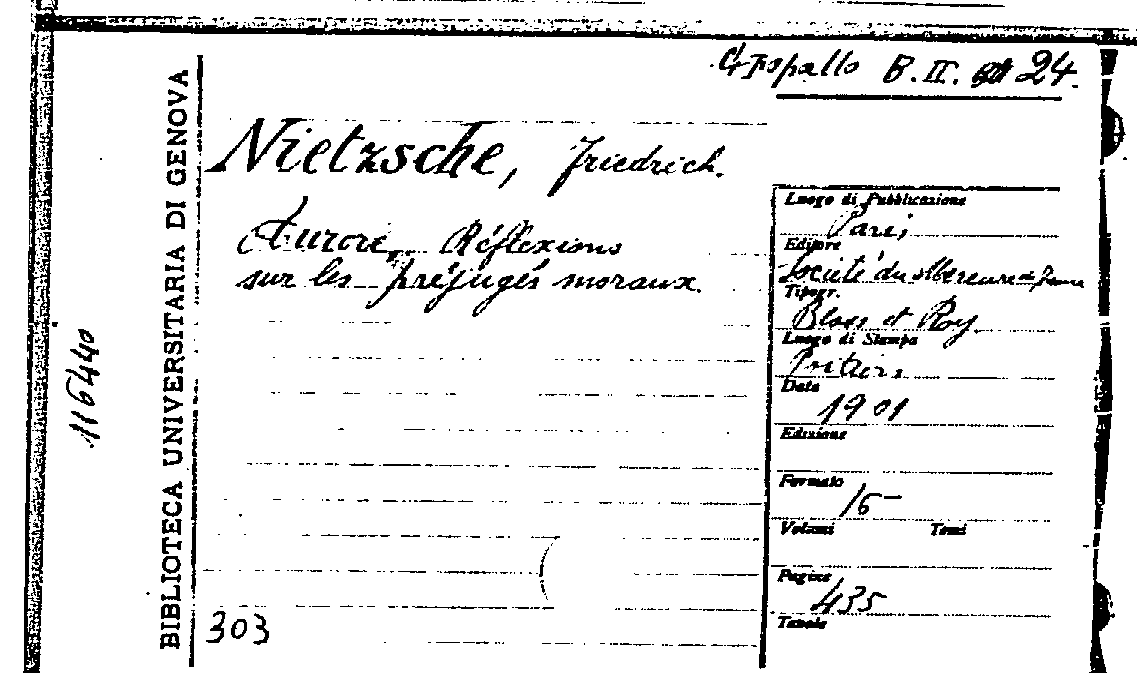 B. II. 24.
BIBLIOTECA UNIVERSITARIA DI GENOVA
116440
Nietzsche, Friedrich.
Aurore, Réflexions
sur les préjugés moraux.
303
Luogo di Pubblicazione
Paris
Editore
Societé du Mercure de France
Tipogr.
Blais et Roy
Luogo di Stampa
Poitiers
Data
1901
Edizione
Formato
16
Volumi Tomi
Pagine
435
Tavole